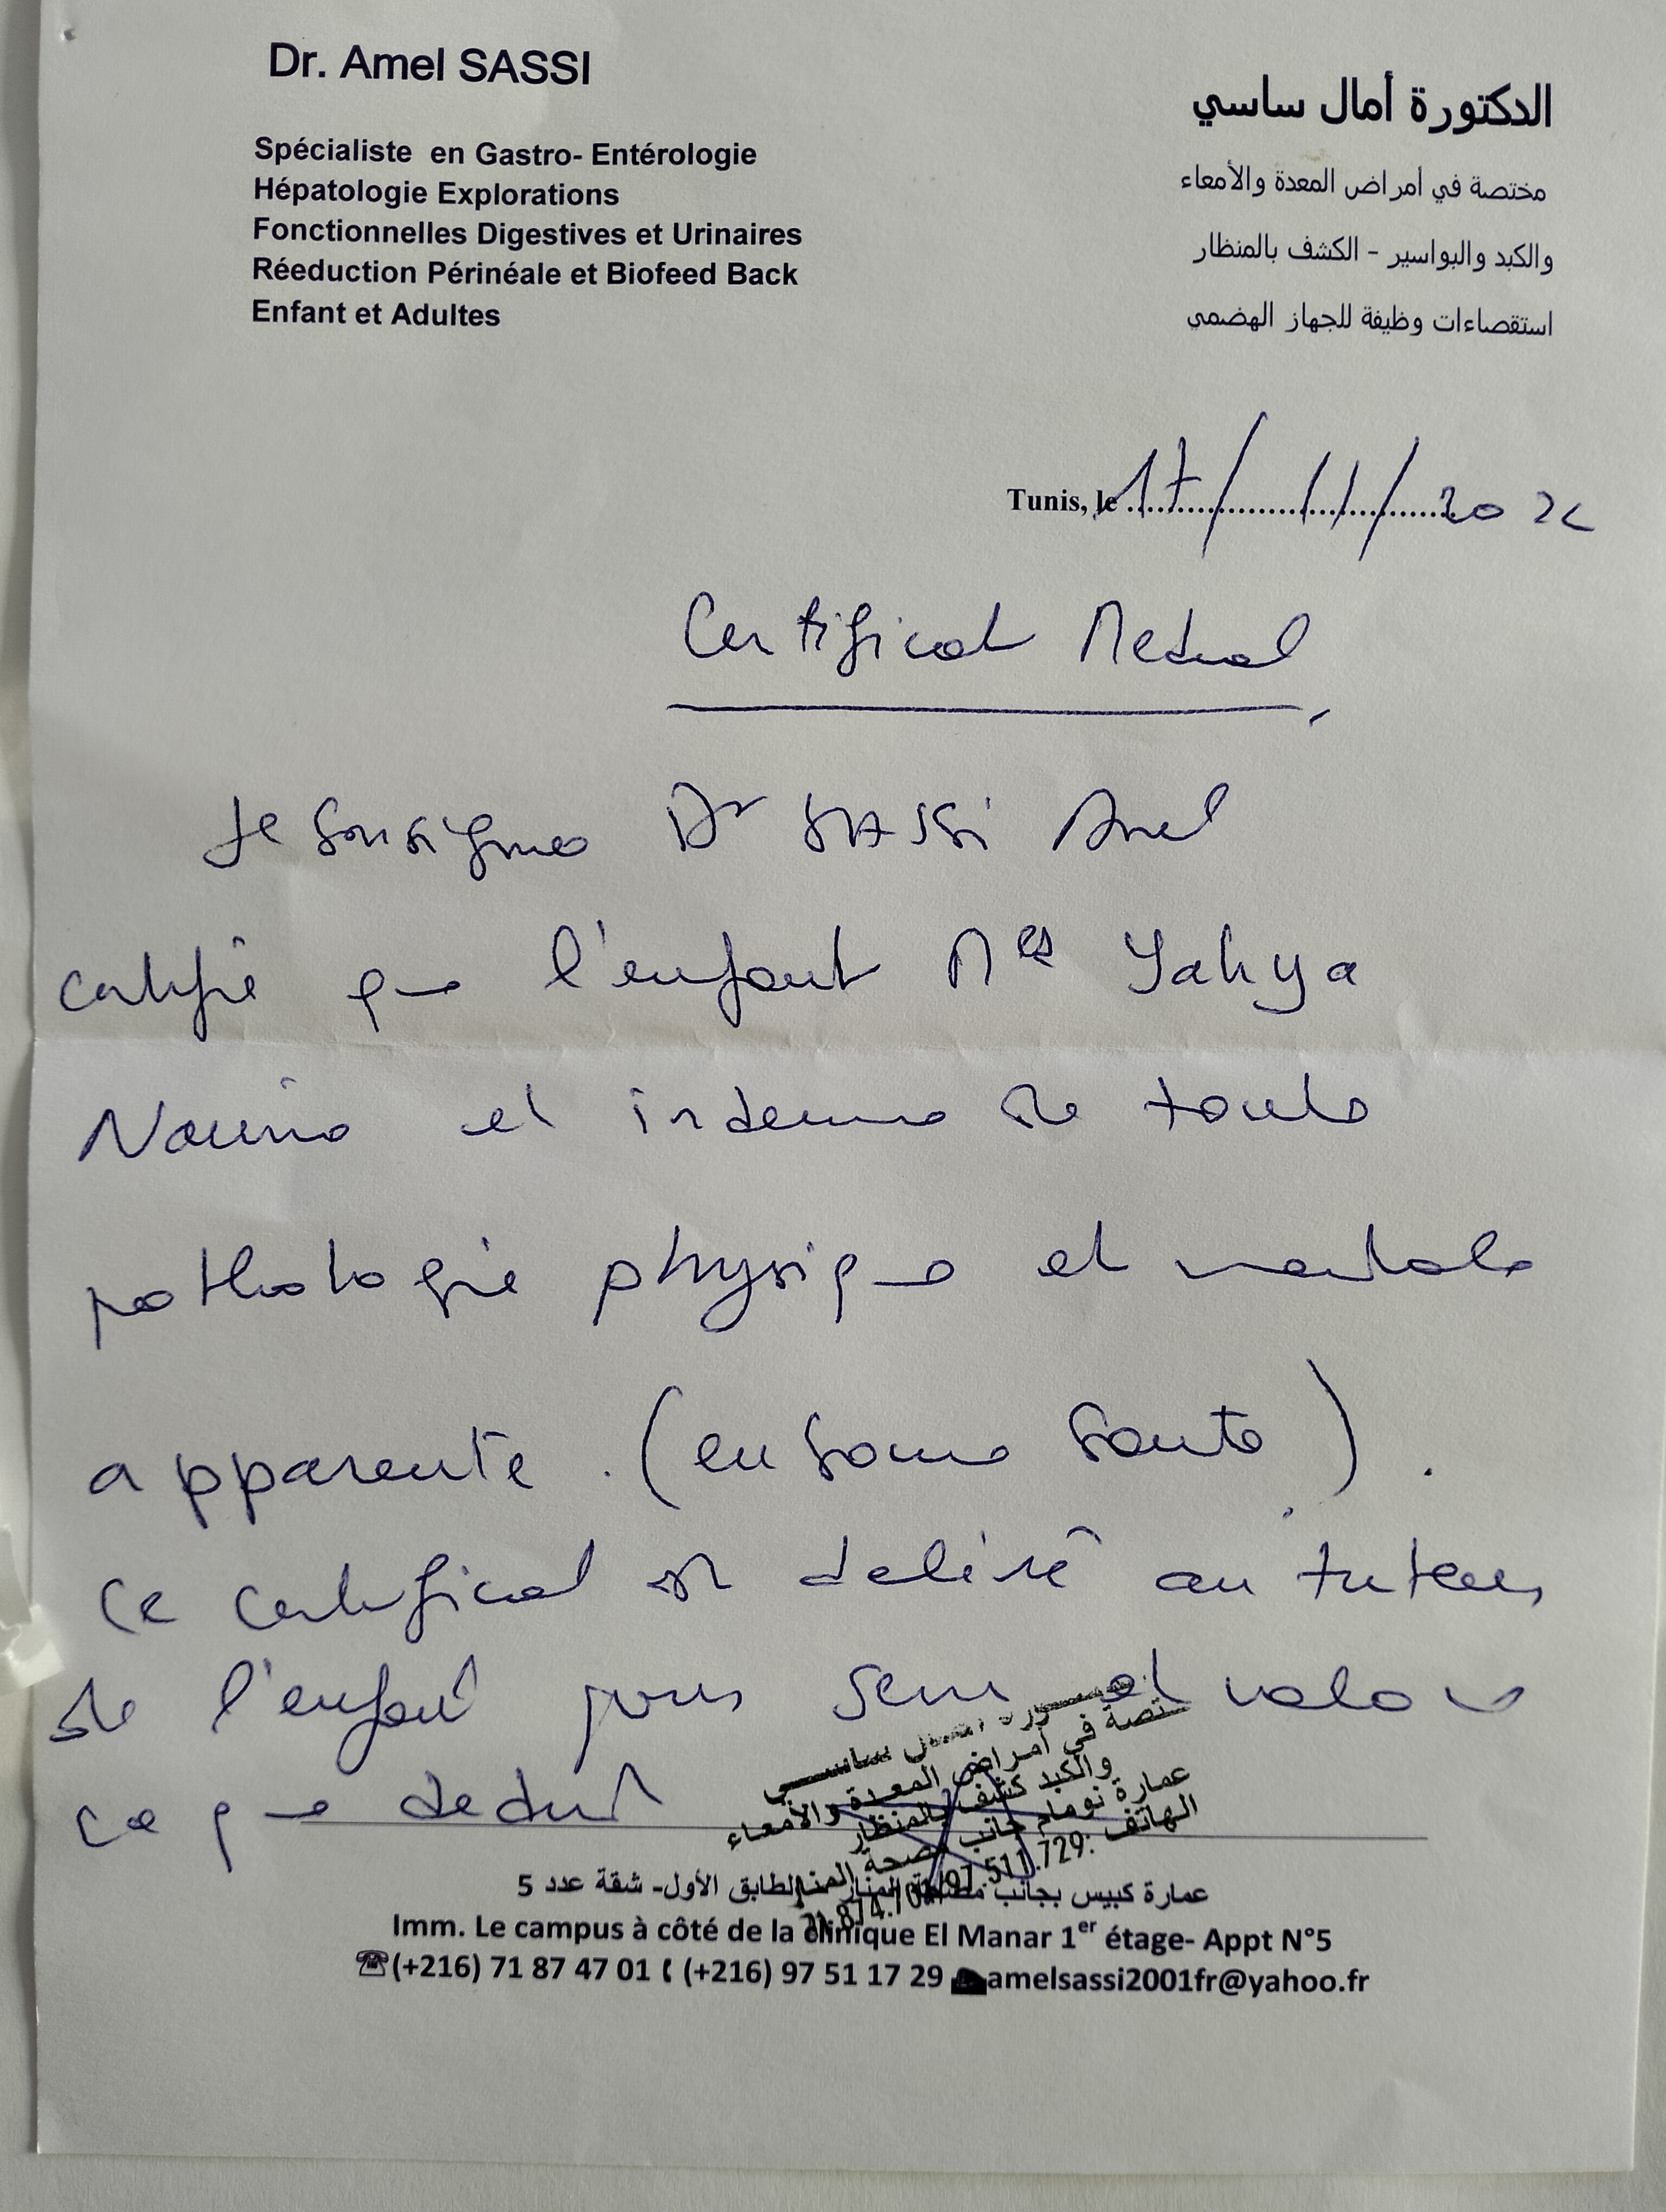 Dr. Amel SASSI
Spécialiste en Gastro- Entérologie
Hépatologie Explorations
Fonctionnelles Digestives et Urinaires
Réeduction Périnéale et Biofeed Back
Enfant et Adultes
الدكتورة أمال ساسي
مختصة في أمراض المعدة والأمعاء
والكبد والبواسير - الكشف بالمنظار
استقصاءات وظيفة للجهاز الهضمي
Tunis, le 17/11/202
Certificat Medical
Je soussigne Dr SASSI Amel
certifie que l'enfant Yahya
est indemne de toute
pathologie physique et mentale
apparente. (en bonne santé).
Ce certificat est delivré au tuteur
de l'enfant pour servir et valoir
ce que de droit
ساسي
مختصة في أمراض المعدة والأمعاء
والكبد كشف بالمنظار
عمارة جانب مصحة المنار
الهاتف: 97.511.729
عمارة كبيس بجانب مصحة المنار - الطابق الأول- شقة عدد 5
Imm. Le campus à côté de la clinique El Manar 1er étage- Appt N°5
(+216) 71 87 47 01 (+216) 97 51 17 29 amelsassi2001fr@yahoo.fr